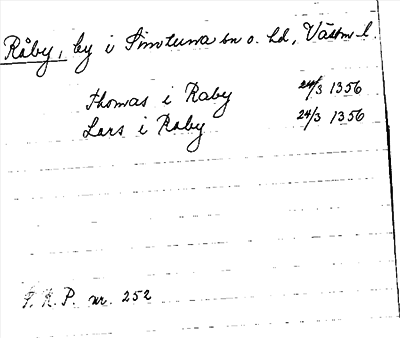 Råby, by i Simtuna sn o. hd, Västm l.
Thomas i Raby 24/3 1356
Lars i Raby 24/3 1356
P. R. P. nr. 252